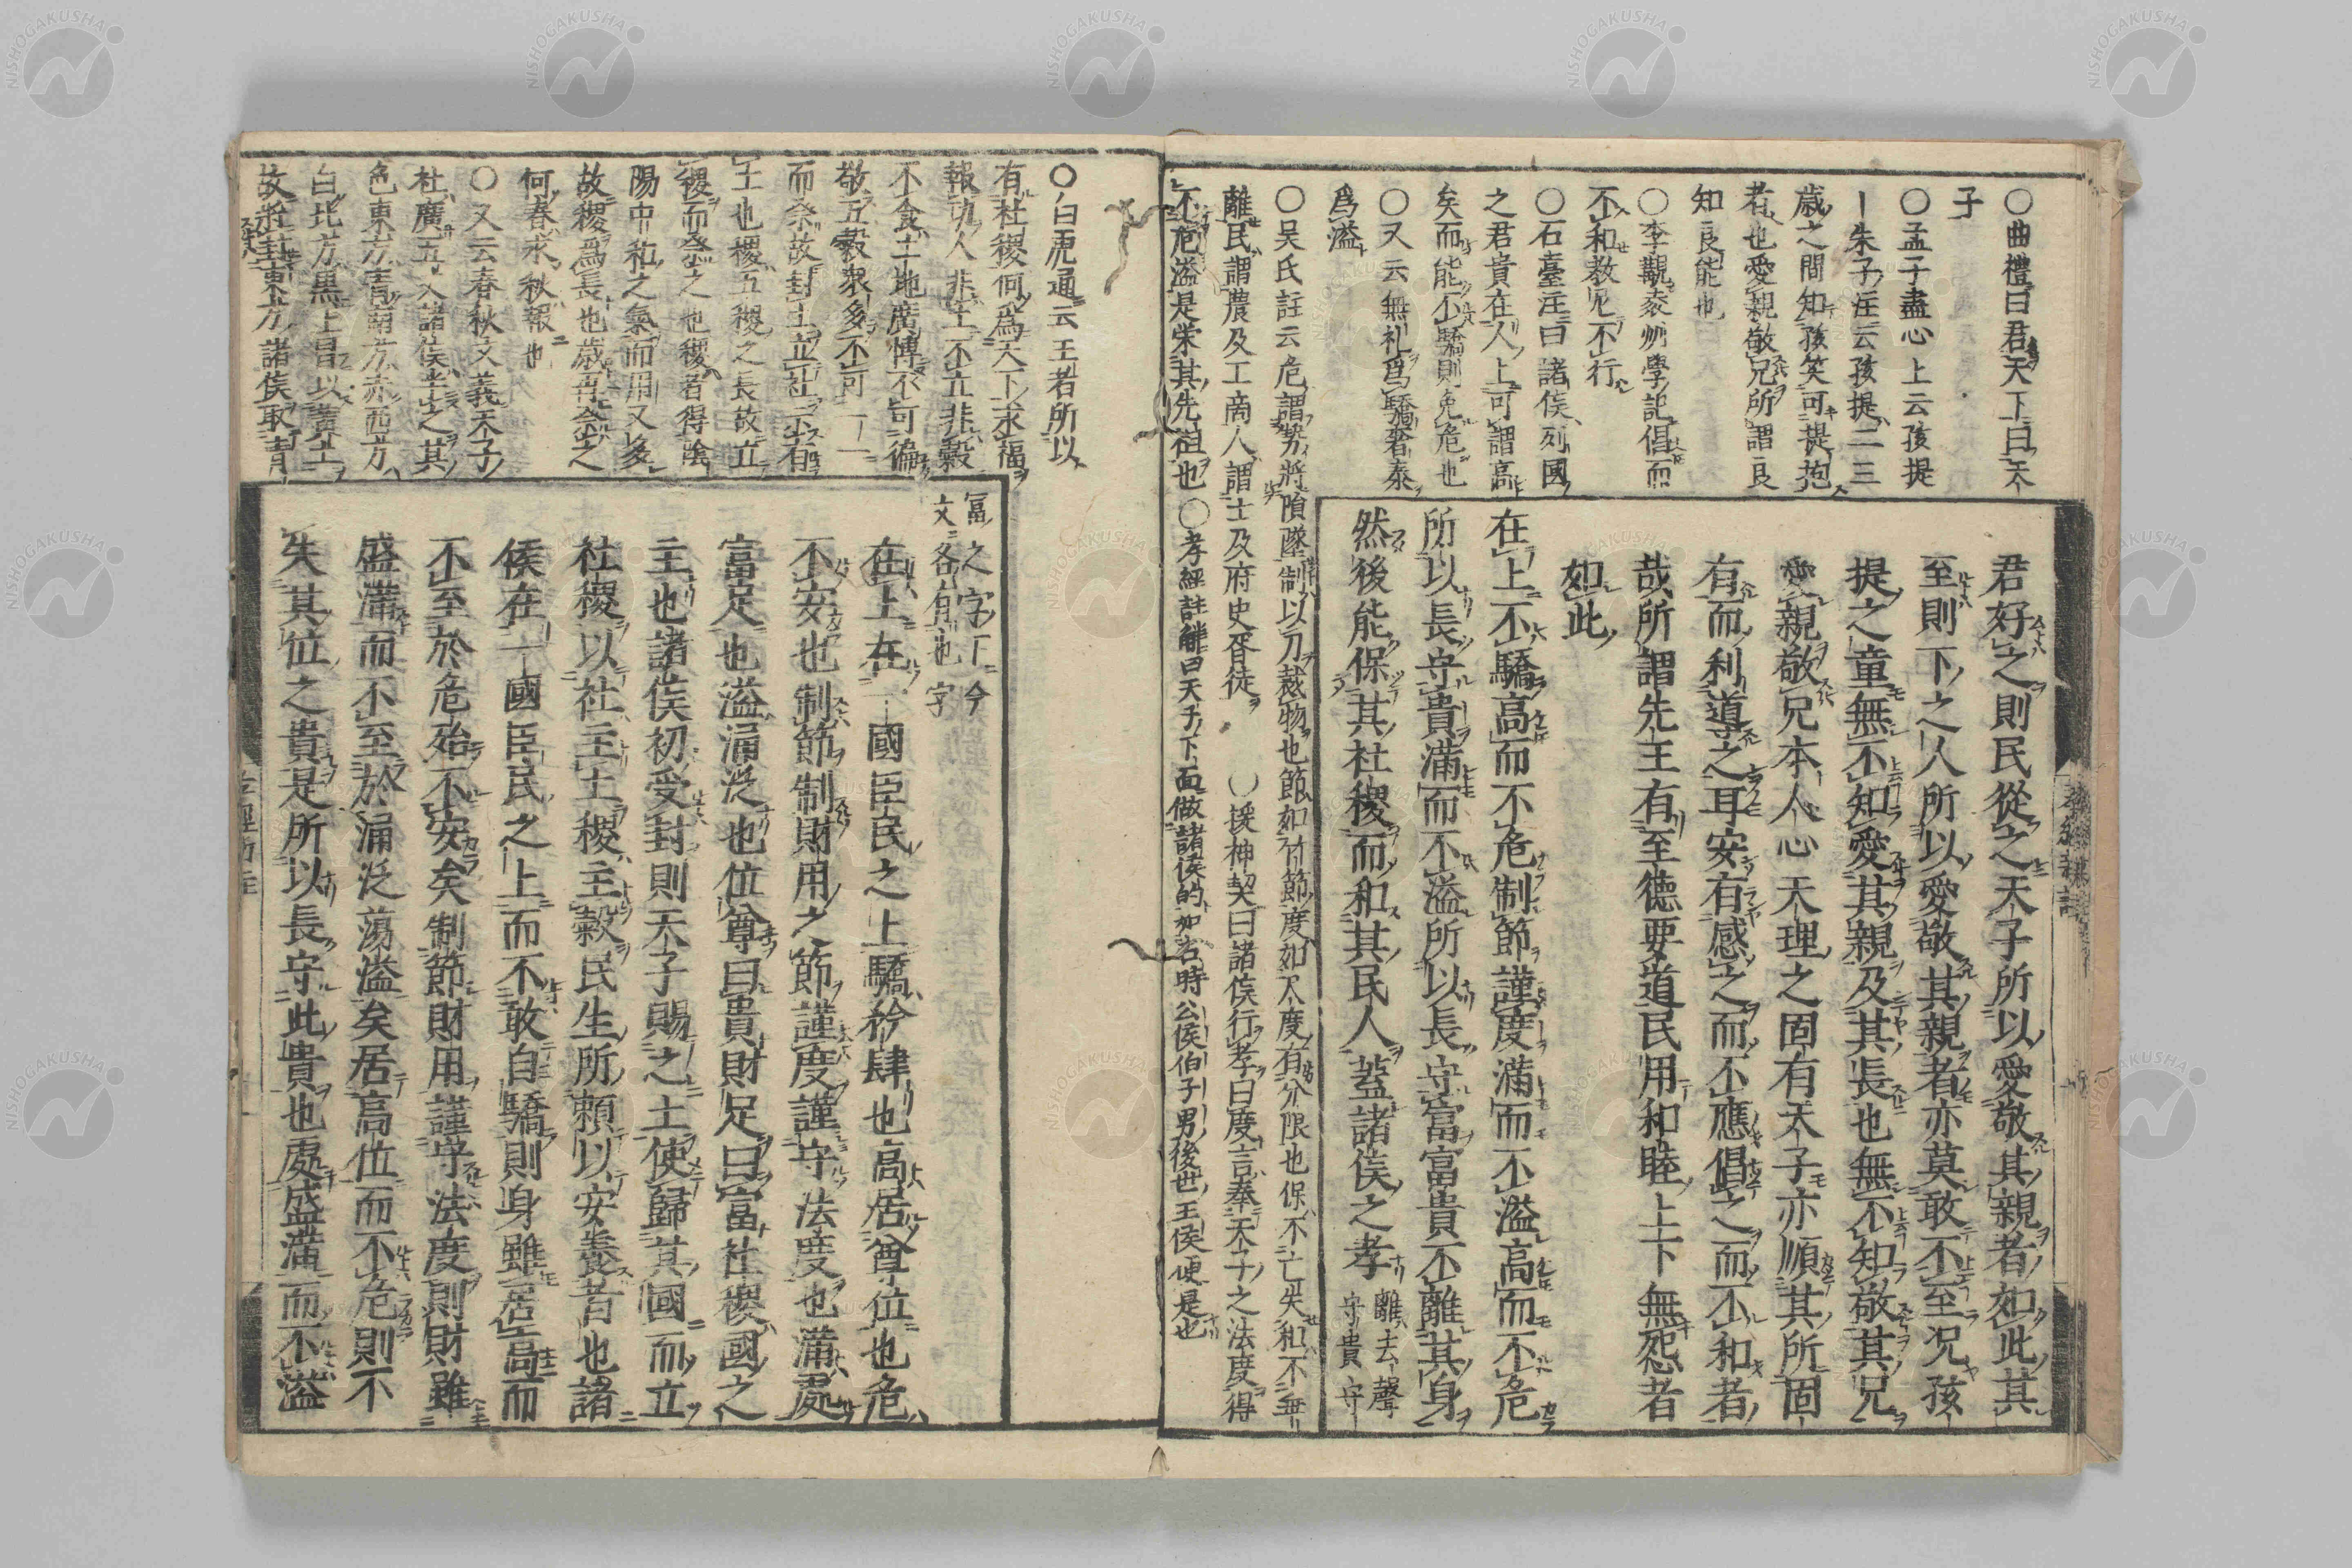 〇曲禮曰君天下曰天
子
〇孟子盡心上云孩提
｜朱子注云孩提二三
歳之間知孩笑可提抱
者也愛親敬兄所謂良
知良能也
不和教而不行
〇石臺注曰諸侯列國
之君貴在人上可謂高
矣而能不驕則免危也
〇又云無礼爲驕奢泰
爲溢
君好之則民從之天子所以愛敬其親者如此其
至則下之人所以愛敬其親者亦莫敢不至况孩
提之童無不知愛其親及其長也無不知敬其兄
愛親敬兄本人心天理之固有天子亦順其所固
有而利導之耳安有感之而不應倡之而不和者
哉所謂先王有至徳要道民用和睦上下無怨者
如此
在上不驕高而不危制節謹度滿而不溢高而不危
所以長守貴滿而不溢所以長守富富貴不離其身
然後能保其社稷而和其民人蓋諸侯之孝
離去聲
守貴守
〇吴氏註云危謂勢將隕墜制以刀裁物也節如竹節度如尺度有分限也保不亡失和不乖
離民謂農及工商人謂士及府史胥徒 〇援神契曰諸侯行孝曰度言奉天子之法度得
不危溢是栄其先祖也 〇孝經註觧曰天子下面做諸侯的如古時公侯伯子男後世王侯便是也
〇白虎通云王者所以
有社稷何爲天下求福
報功人非土不立非穀
不食土地廣博不可徧
敬五穀衆多不可一一
而祭故封土立社示有
土也稷五穀之長故立
稷而祭之也稷者得陰
陽中和之氣而用又多
故稷爲長也歳再祭之
何春求秋報也
〇又云春秋文義天子
社廣五丈諸侯半之其
色東方青南方赤西方
白北方黒上冒以黄土
故將封東方諸侯取青
冨之字下今
文各有也字
在上在一國臣民之上驕矜肆也高居尊位也危
不安也制節制財用之節謹度謹守法度也滿處
富足也溢涌泛也位尊曰貴財足曰富社稷國之
主也諸侯初受封則天子賜之土使歸其國而立
社稷以社主土稷主穀民生所頼以安養者也諸
侯在一國臣民之上而不敢自驕則身雖居高而
不至於危殆不安矣制節財用謹守法度則財雖
盛滿而不至於涌泛蕩溢矣居高位而不危則不
失其位之貴是所以長守此貴也處盛滿而不溢